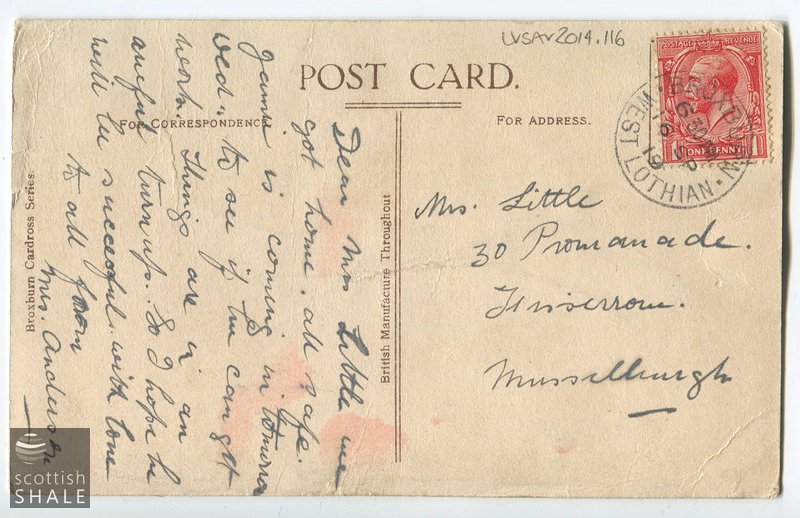 LVSAV2014.116
POST CARD.
FOR CORRESPONDENCE
FOR ADDRESS.
POSTAGE REVENUE
ONE PENNY
BROXBURN
6 30 PM
16 SP
19
WEST LOTHIAN
Dear Mrs Little we
got home. all safe.
Jamie is coming in tomorrow
wed" to see if he can get
work. Things are in an
aweful turn up. So I hope he
will be succesful. with love
to all from
Mrs. Anderson
Mrs. Little
30 Promanade.
Fisserrow.
Musselburgh
British Manufacture Throughout
Broxburn Cardross Series.
scottish
SHALE